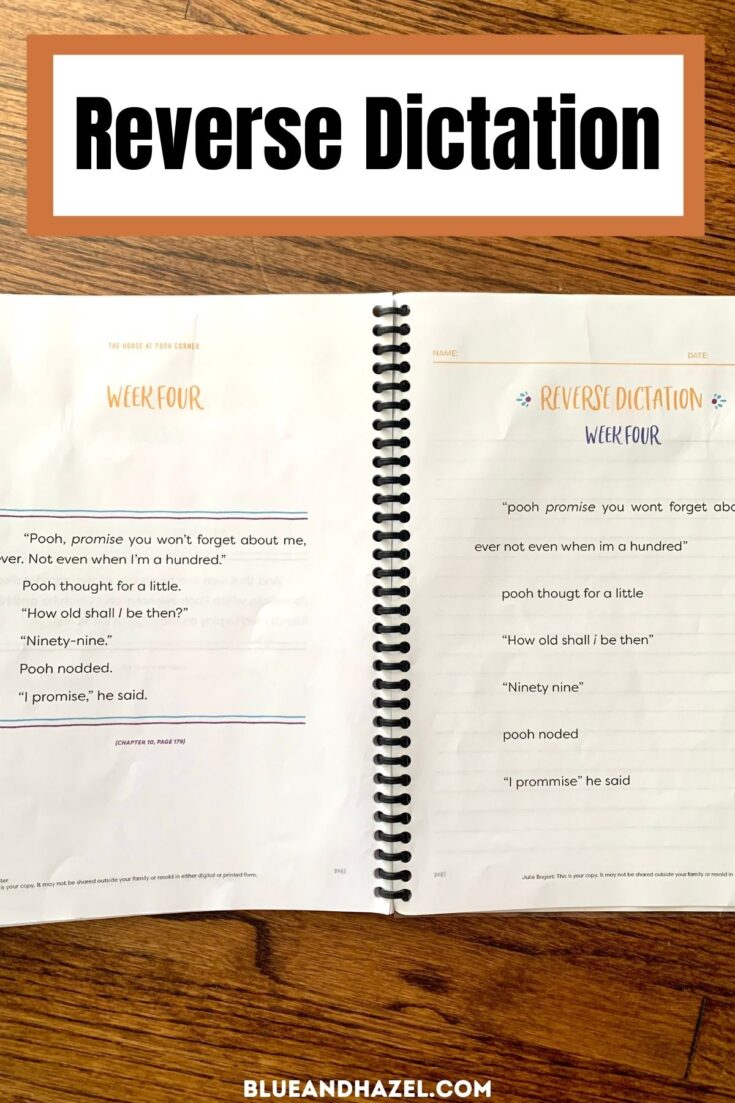 Reverse Dictation
THE HOUSE AT POOH CORNER
WEEK FOUR
“Pooh, promise you won’t forget about me,
ver. Not even when I’m a hundred.”
Pooh thought for a little.
“How old shall I be then?”
“Ninety-nine.”
Pooh nodded.
“I promise,” he said.
(CHAPTER 10, PAGE 179)
your copy. It may not be shared outside your family or resold in either digital or printed form.
NAME:
DATE:
REVERSE DICTATION
WEEK FOUR
“pooh promise you wont forget abo
ever not even when im a hundred”
pooh thougt for a little
“How old shall i be then”
“Ninety nine”
pooh noded
“I prommise” he said
Julie Bogart. This is your copy. It may not be shared outside your family or resold in
BLUEANDHAZEL.COM